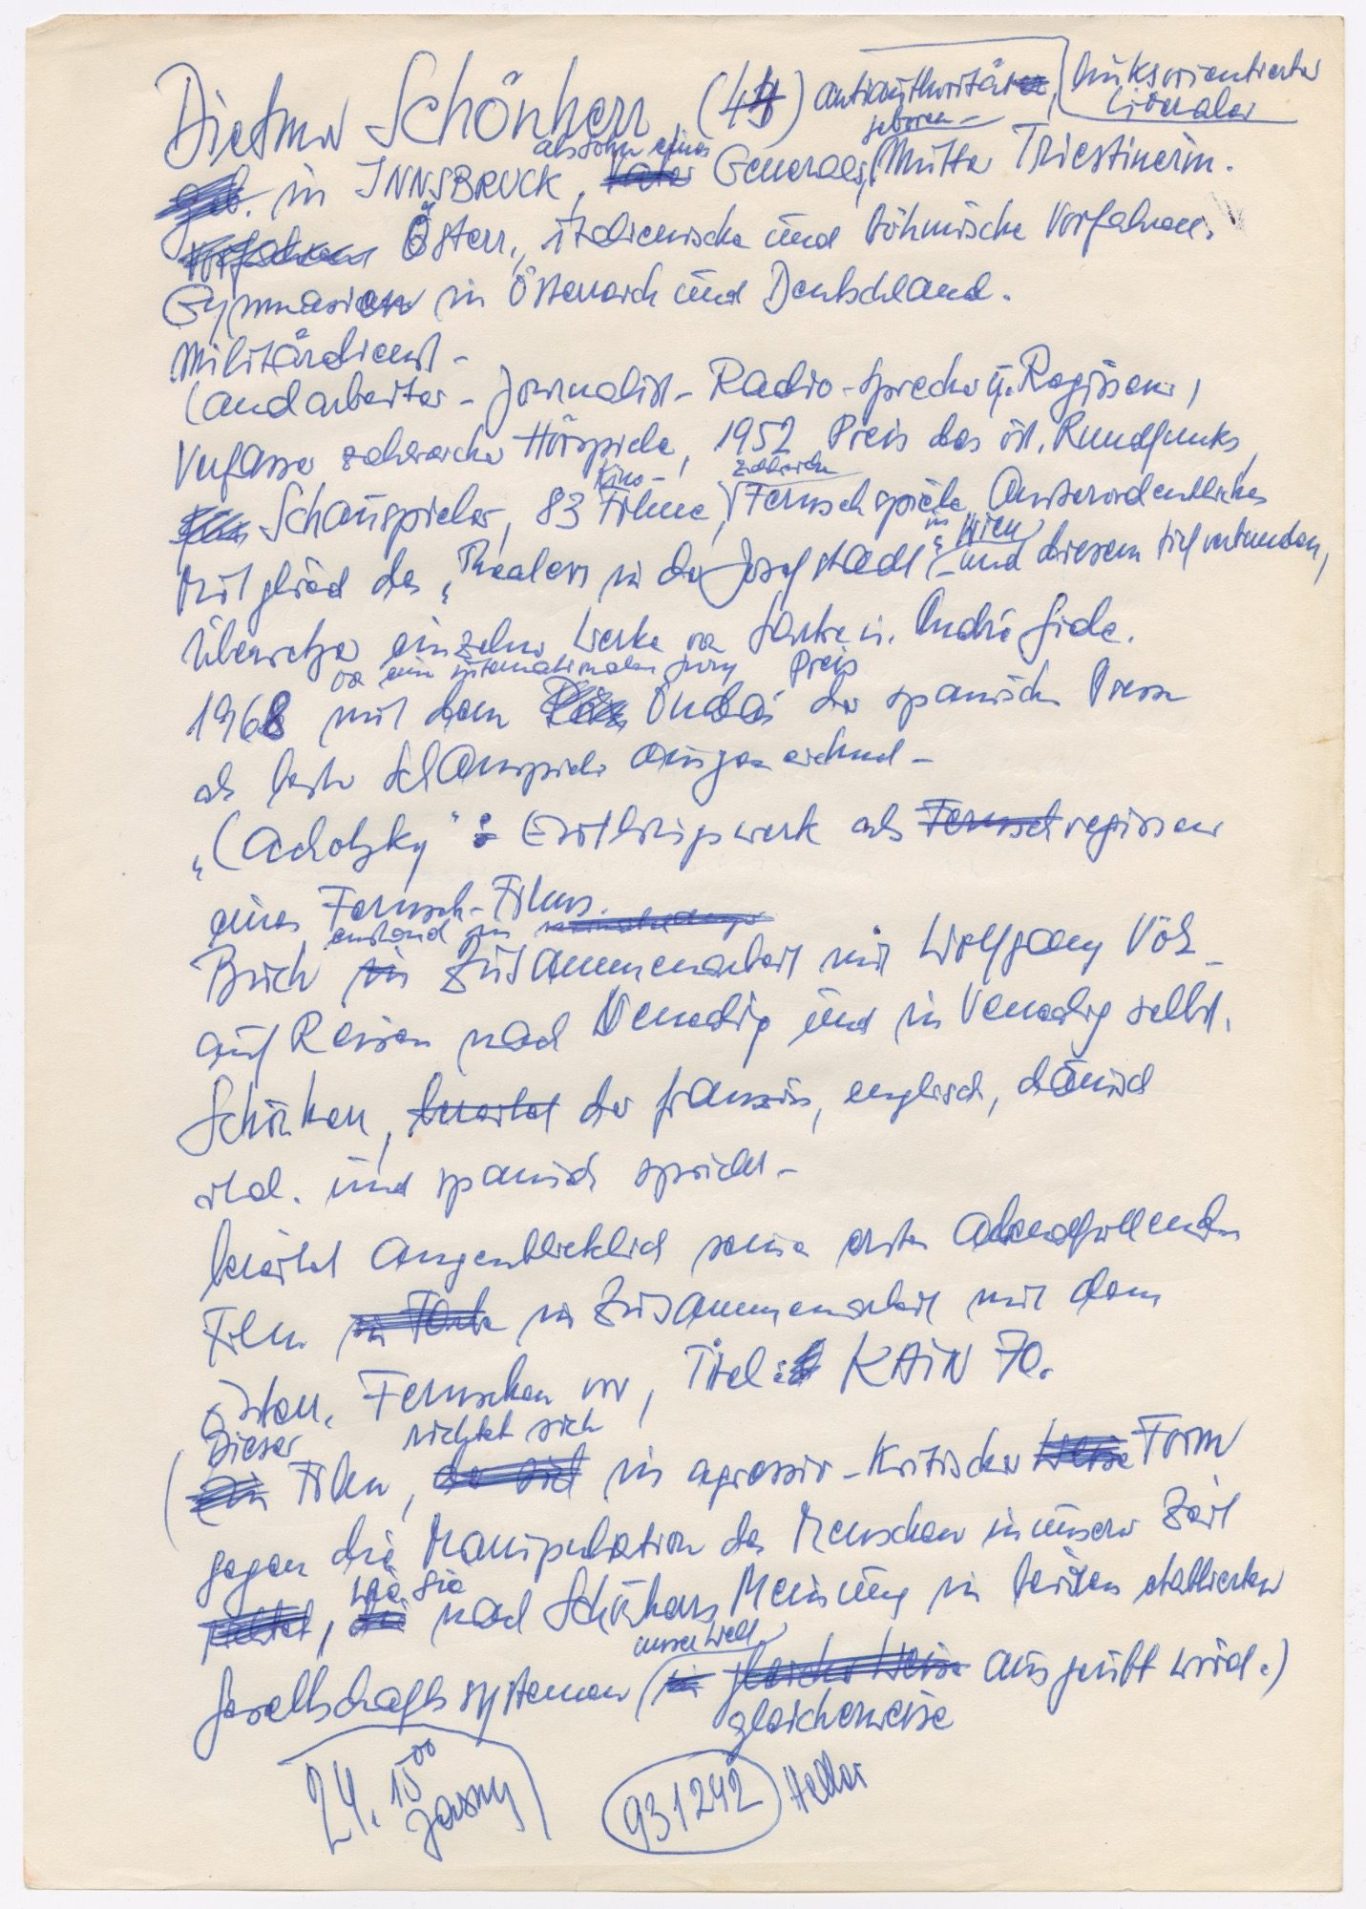 Dietmar Schönherr, (44) antiauthoritär, linksorientierter
Liberaler
geboren
als Sohn eines
geb. in INNSBRUCK, Vater Generales, Mutter Triestinerin.
Vorfahren Österr., italienische und böhmische Vorfahren.
Gymnasien in Österreich und Deutschland.
Militärdienst -
Landarbeiter - Journalist - Radio-Sprecher u. Regisseur,
Verfasser zahlreicher Hörspiele, 1952 Preis des öst. Rundfunks,
Kino- zahlreiche
Schauspieler, 83 Filme, Fernsehspiele, Ausserordentliches
in Wien
Mitglied des „Theaters in der Josefstadt" - und diesem tief verbunden,
Übersetzer einzelner Werke von Sartre u. André Gide.
von einer internationalen Jury Preis
1968 mit dem Ondas der spanischen Presse
als bester Schauspieler ausgezeichnet -
„Cadotzky": Erstlingswerk als Fernsehregisseur
eines Fernseh-Films.
entstand in
Buch in Zusammenarbeit mit Wolfgang Völz
auf Reisen nach Venedig und in Venedig selbst.
Schönherr, bereitet der französ., englisch, dänisch
ital. und spanisch spricht -
bereitet augenblicklich seinen ersten abendfüllenden
Film in Zusammenarbeit mit dem
Österr. Fernsehen vor, Titel: KAIN 70.
Dieser richtet sich
(Ein Film, der sich in agressiv-kritischer Weise Form
gegen die Manipulation des Menschen in unserer Zeit
wie sie
richtet, die nach Schönherrs Meinung in beiden etablierten
unserer Welt
Gesellschaftssystemen (in gleicher Weise ausgeübt wird.)
gleicherweise
24. 15⁰⁰
931242 Heller